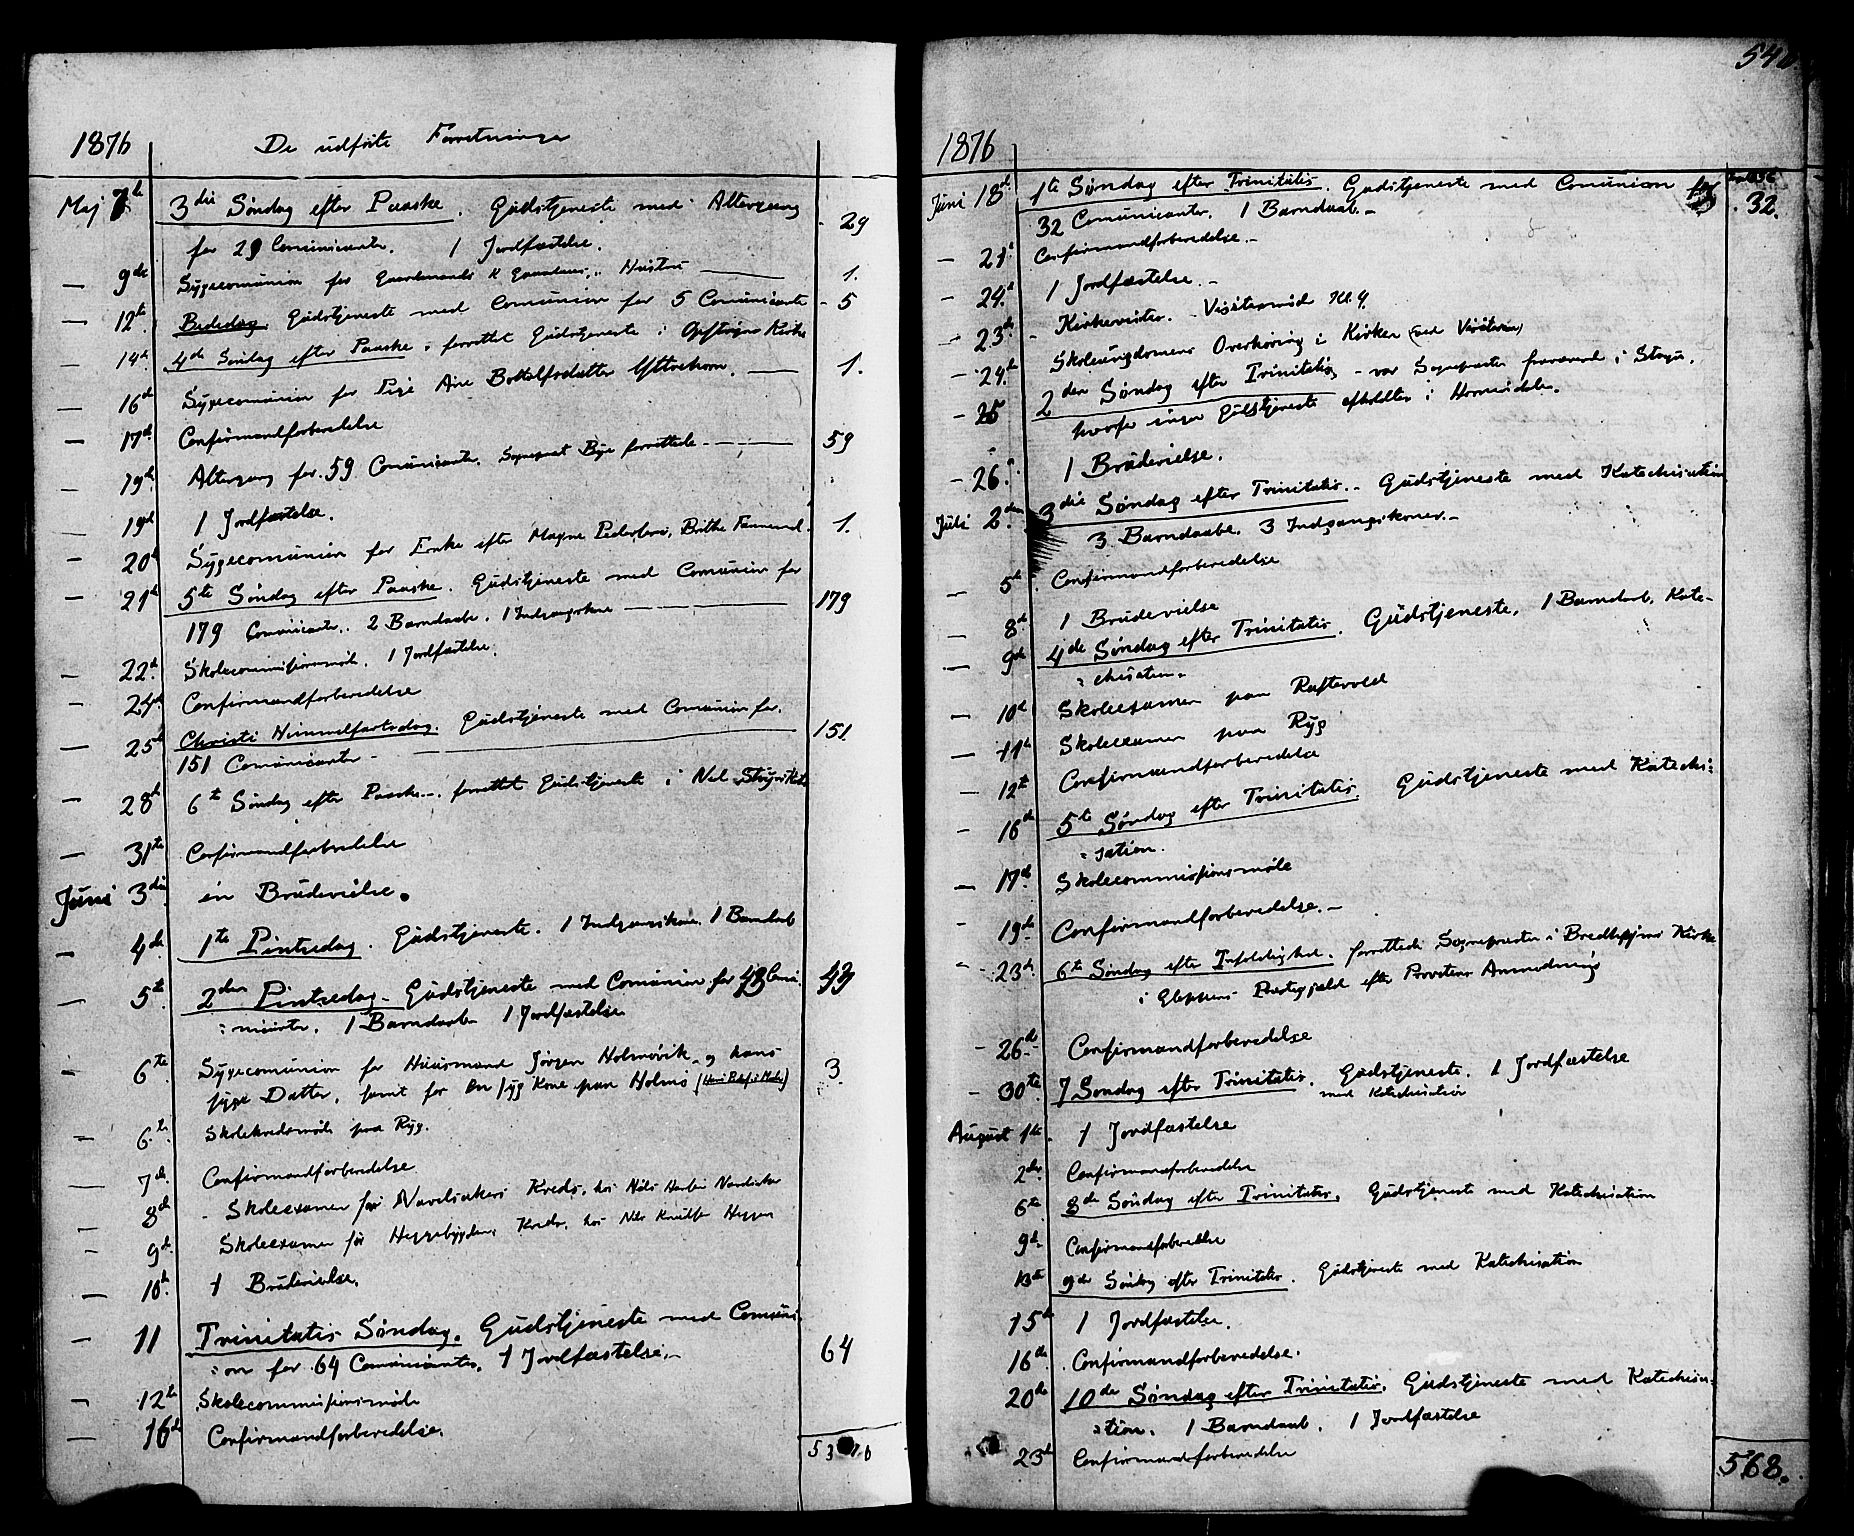 1876 De udførte Forretninger
Maj 7de 3die Søndag efter Paaske. Gudstjeneste med Altergang
for 29 Comunicanter. 1 Jordfæstelse. 29
— 9de Sygecomunion for Gaardmands Hustru — 1.
— 12te Bededag. Gudstjeneste med Comunion for 5 Comunicanter - 5
— 14de 4de Søndag efter Paaske, forrettet Gudstjeneste i Kirke
— 16de Sygecomunion for Pige Ane Bottolfsdatter Yttrehorn. — 1.
— 17de Confirmandforberedelse
— 19de Altergang for 59 Comunicanter. Sognepræst Bye forrettede — 59
— 19de 1 Jordfæstelse.
— 20de Sygecomunion for Enke efter Magne Pedersen, Brithe 1.
— 21de 5te Søndag efter Paaske. Gudstjeneste med Comunion for
179 Comunicanter. 2 Barndaab. 1 Indgangskone — 179
— 22de Skolecommissionsmøde. 1 Jordfæstelse.
— 24de Confirmandforberedelse
— 25de Christi Himmelfartsdag. Gudstjeneste med Comunion for
151 Comunicanter — 151
— 28de 6te Søndag efter Paaske, forrettet Gudstjeneste i Kirke
— 31te Confirmandforberedelse
Juni 3die en Brudevielse.
— 4de 1te Pintsedag. Gudstjeneste. 1 Indgangskone. 1 Barndaab
— 5te 2den Pintsedag. Gudstjeneste med Comunion for 43 Comu- 43
:nicanter. 1 Barndaab 1 Jordfæstelse
— 6te Sygecomunion for Huusmand Jørgen Holmøvik og hans
syge Datter, samt for en syg Kone paa Holmø 3.
— 6te Skolekredsmøde paa Ryg.
— 7de Confirmandforberedelse
— 8de Skoleexamen for Navelsakers Kreds, hos Nils
— 9de Skoleexamen for Heggebygdens Kreds, hos Nils Knutsen Heggen
— 10de 1 Brudevielse.
— 11 Trinitatis Søndag. Gudstjeneste med Comuni-
:on for 64 Comunicanter. 1 Jordfæstelse.— 64
— 12te Skolecommissionsmøde
— 16de Confirmandforberedelse.
1876
Juni 18de 1te Søndag efter Trinitatis. Gudstjeneste med Comunion for
32 Comunicanter. 1 Barndaab.— 32.
— 21de Confirmandforberedelse.—
— 24de 1 Jordfæstelse.—
— 23de Kirkevisitas. - Visitasmøde Kl. 4
— 24de Skoleungdomens Overhøring i Kirken (ved Visitasen)
— 25 2den Søndag efter Trinitatis, - var Sognepræsten fraværende i
hvorfor ingen Gudstjeneste afholdtes i Hornindalen.
— 26 1 Brudevielse.
Juli 2den 3die Søndag efter Trinitatis.- Gudstjeneste med Katechisation
3 Barndaabe, 3 Indgangskoner.—
— 5te Confirmandforberedelse
— 8de 1 Brudevielse
— 9de 4de Søndag efter Trinitatis. Gudstjeneste. 1 Barndaab, Kate-
:chisation.
— 10de Skoleexamen paa Raftevold
— 11te Skoleexamen paa Ryg
— 12te Confirmandforberedelse
— 16de 5te Søndag efter Trinitatis. Gudstjeneste med Katechi:
:sation.
— 17de Skolecommissionsmøde
— 19de Confirmandforberedelse.—
— 23de 6te Søndag efter Trefoldighed. forrettede Sognepræsten i Bredheims Kirke
i Gloppens Prestegjeld efter Provstens Anmodning
— 26de Confirmandforberedelse
— 30te 7 Søndag efter Trinitatis. Gudstjeneste. 1 Jordfæstelse
med Katechisation
August 1te 1 Jordfæstelse
2den Confirmandforberedelse
6te 8de Søndag efter Trinitatis. Gudstjeneste med Katechisation
9de Confirmandforberedelse
13te 9de Søndag efter Trinitatis. Gudstjeneste med Katechisation
15de 1 Jordfæstelse.
16de Confirmandforberedelse.
20de 10de Søndag efter Trinitatis. Gudstjeneste med Katechisa-
:tion. 1 Barndaab. 1 Jordfæstelse
23de Confirmandforberedelse
568.